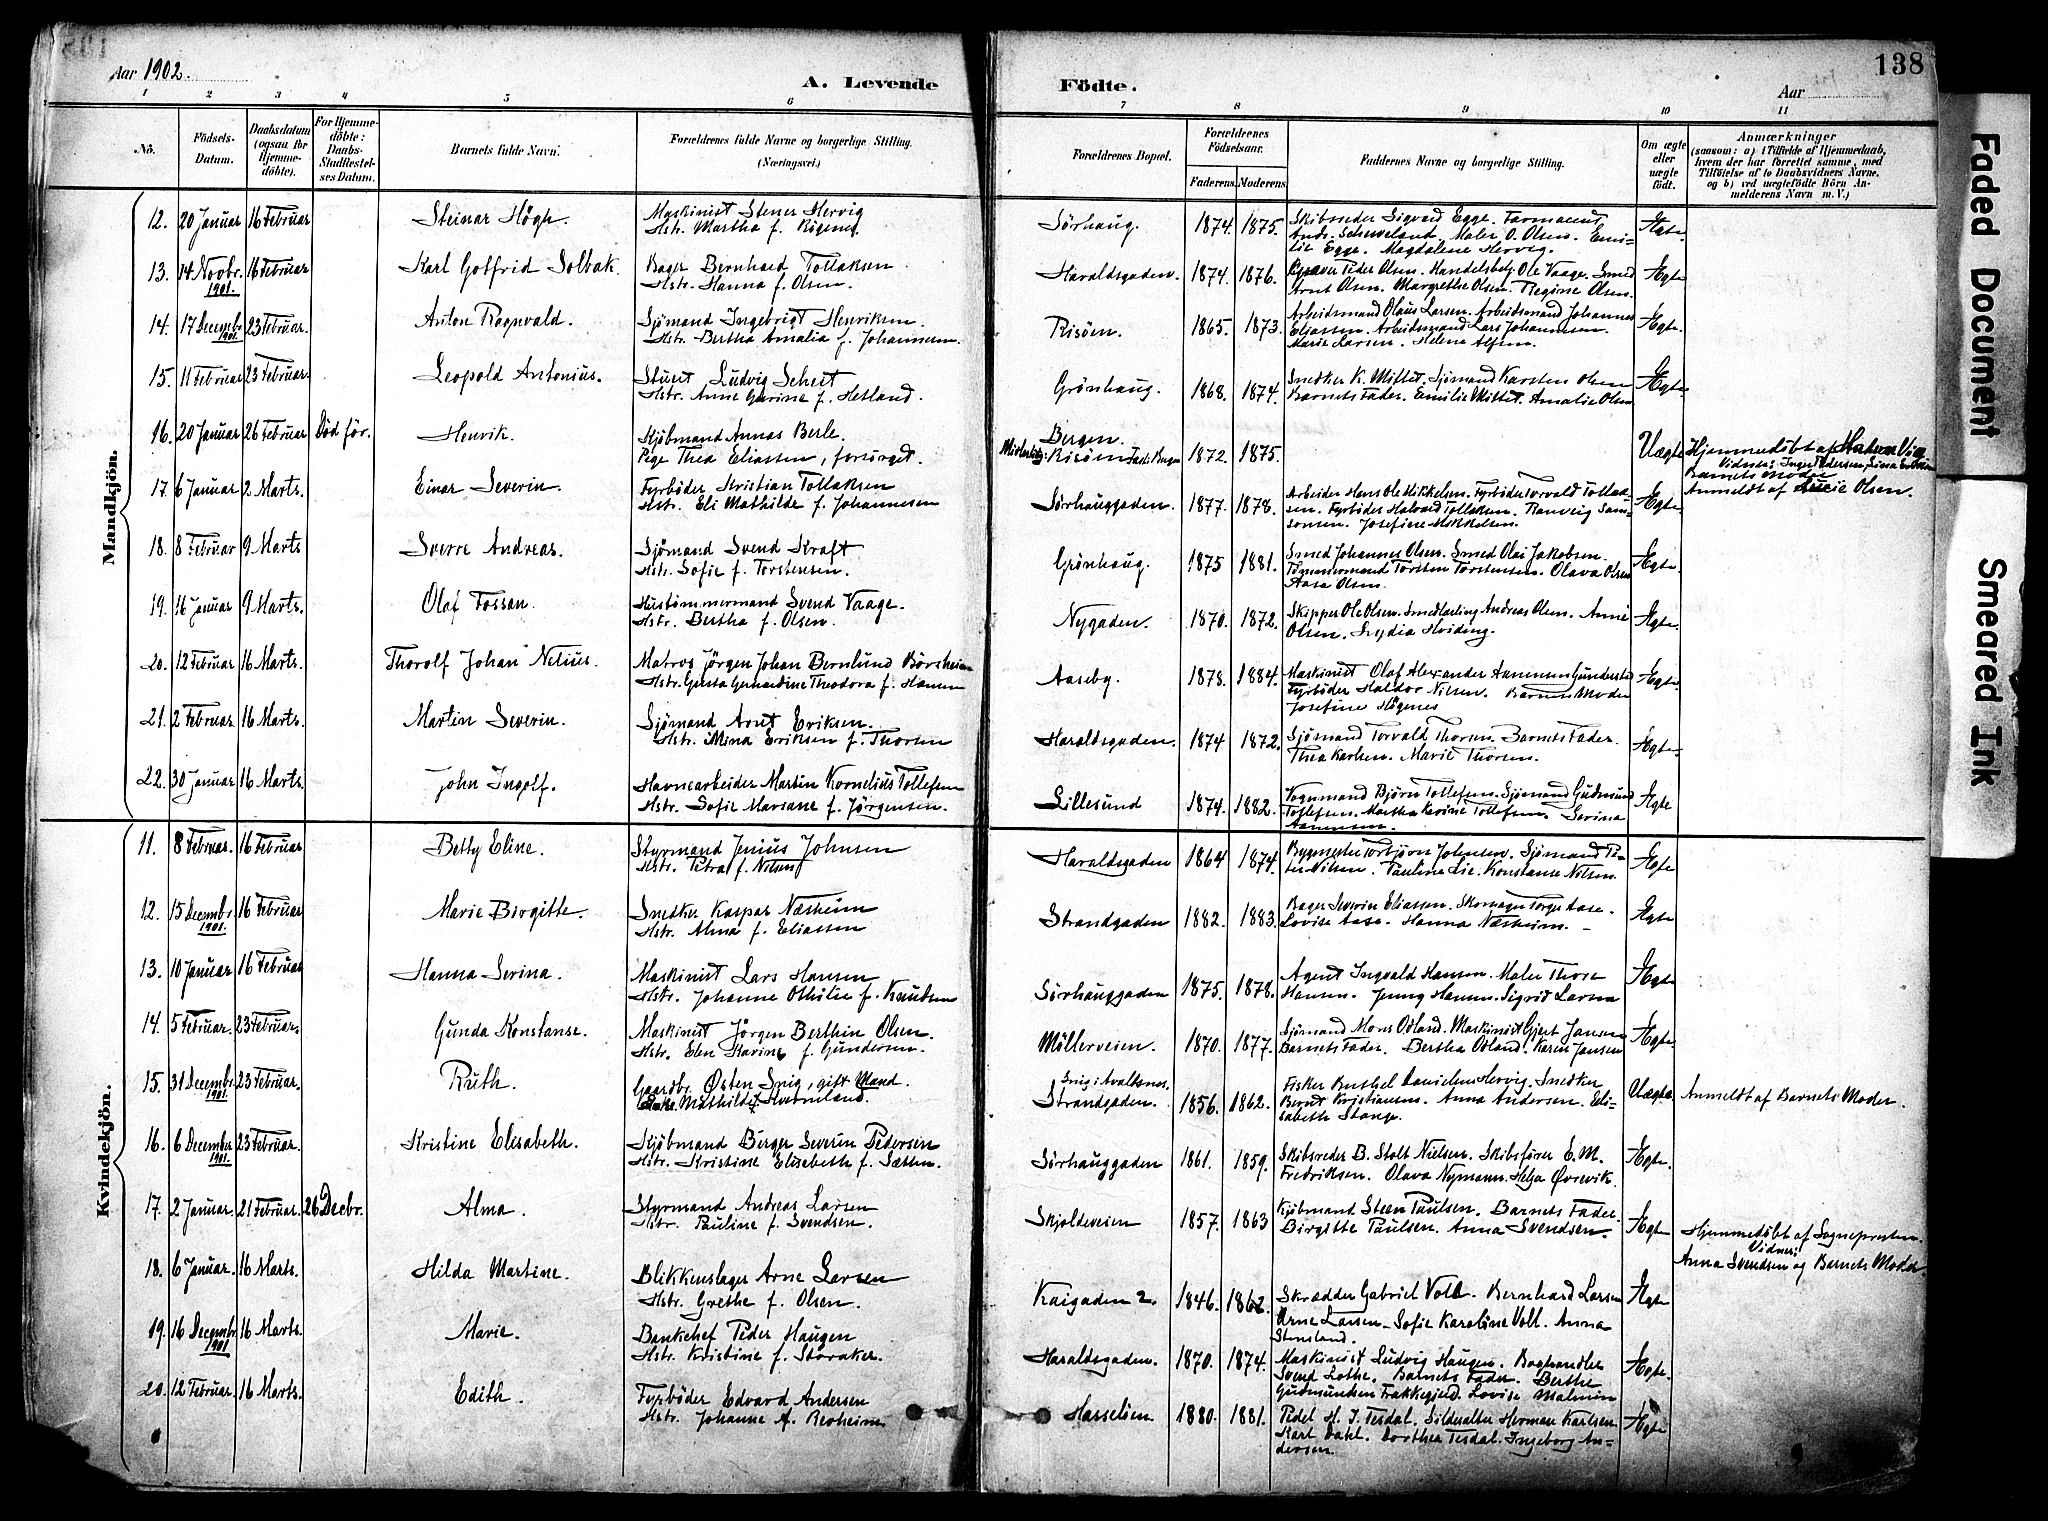 Aar 1902.
A. Levende Födte.
Aar
138
1 2 3 4 5 6 7 8 9 10 11
No. Födsels-Datum. Daabsdatum (ogsaa for Hjemme-döbte). For Hjemme-döbte: Daabs-Stadfæstel-ses Datum. Barnets fulde Navn. Forældrenes fulde Navne og borgerlige Stilling. (Næringsvei.)
Forældrenes Bopæl. Forældrenes Födselsaar. Faderens. Moderens. Faddernes Navne og borgerlige Stilling. Om ægte eller uægte födt. Anmærkninger (saasom: a) i Tilfælde af Hjemmedaab, hvem der har forrettet samme, med Tilföielse af to Daabsvidners Navne, og b) ved uægtefödte Börn An-melderens Navn m. V.)
Mandkjön.
12. 20 Januar 16 Februar Steinar Högh. Maskinist Stener Hervig Hstr. Martha f. Sørhaug. 1874. 1875. Skibsreder Sigvard Egge. Farmaceut Andr. Maler O. Olsen. Emi-lie Egge. Magdalene Hervig. Ægte.
13. 14 Novbr. 1901. 16 Februar Karl Gotfrid Solbak. Bager Bernhard Tollaksen. Hstr. Hanna f. Olsen. Haraldsgaden. 1874. 1876. Peder Olsen. Handelsbetj. Ole Vaage. Smed Arnt Olsen. Margrethe Olsen. Regine Olsen. Ægte
14. 17 Decembr. 1901. 23 Februar. Anton Ragnvald. Sjömand Ingebrigt Henriksen. Hstr. Bertha Amalia f. Johannesen. Risöen. 1865. 1873. Arbeidsmand Olaus Larsen. Arbeidsmand Johannes Eliassen. Arbeidsmand Lars Johannesen. Marie Larsen. Helene Ægte.
15. 11 Februar 23 Februar. Leopold Antonius. Stuert Ludvig Hstr. Anne Gurine f. Hetland. Grönhaug. 1868. 1874. Snedker K. Mittet. Sjömand Karsten Olsen Barnets Fader. Emilie Mittet. Amalie Olsen Ægte
16. 20 Januar 26 Februar Död för. Henrik. Kjöbmand Annas Berle. Pige Thea Eliassen, forsørget. Bergen. Risöen 1872. 1875. Uægte Hjemmedöbt af Vidner: Barnets Moder Anmeldt af Olsen.
17. 6 Januar 2 Marts. Einar Severin. Fyrböder Kristian Tollaksen Hstr. Eli Mathilde f. Johannesen Sørhauggaden. 1877. 1878. Arbeider Hans Ole Mikkelsen. Fyrböder Torvald Tollak-sen. Fyrböder Halvard Tollaksen. Ranveig Sam-sonsen. Josefine Mikkelsen. Ægte.
18. 8 Februar 9 Marts Sverre Andreas. Sjömand Svend Kraft Hstr. Sofie f. Torstensen. Grönhaug. 1875 1881. Smed Johannes Olsen. Smed Olai Jakobsen. Tömmermand Torsten Torstensen. Olava Olsen Aasa Olsen. Ægte.
19. 16 Januar 9 Marts. Olaf Fossan. Hustömmermand Svend Vaage. Hstr. Bertha f. Olsen. Nygaden. 1870. 1872. Skipper Ole Olsen. Smedlærling Andreas Olsen. Anne Olsen. Lydia Hviding. Ægte.
20. 12 Februar 16 Marts. Thorolf Johan Nelius. Matros Jörgen Johan Bernlund Börsheim Hstr. Gernardine Theodora f. Hansen Aaseby. 1878. 1884. Maskinist Olaf Alexander Fyrböder Haldor Nilsen. Barnets Moder Josefine Høgenes Ægte.
21. 2 Februar 16 Marts. Martin Severin. Sjömand Arnt Eriksen. Hstr. Mina Eriksen f. Thorsen Haraldsgaden. 1874 1872. Sjömand Torvald Thorsen. Barnets Fader. Thea Karlsen. Marie Thorsen. Ægte.
22. 30 Januar 16 Marts. John Ingolf. Havnearbeider Martin Kornelius Tollefsen Hstr. Sofie Mariane f. Jörgensen. Lillesund 1874. 1882. Vognmand Björn Tollefsen. Sjömand Gudmund Tollefsen. Martha Karine Tollefsen. Serina Ægte
Kvindekjön.
11. 8 Februar. 16 Februar Betty Eline. Styrmand Junius Johnsen Hstr. Petra f. Nilsen Haraldsgaden 1864 1874. Bygmester Torbjörn Johnsen. Sjömand Pe-ter Nilsen. Paulina Lie. Konstanse Nilsen. Ægte
12. 15 Decembr. 1901. 16 Februar Marie Birgitte. Snedker Kaspar Næsheim Hstr. Alma f. Eliassen Strandgaden 1882. 1883. Bager Severin Eliassen. Skomager Torger Aase. Lovise Aase. Hanna Næsheim. Ægte
13. 10 Januar 16 Februar Hanna Serina. Maskinist Lars Hansen Hstr. Johanne Othilie f. Knudsen Sørhauggaden 1875. 1878. Agent Ingvald Hansen. Maler Thore Hansen. Jenny Hansen. Sigrid Larsen Ægte
14. 5 Februar. 23 Februar. Gunda Konstanse. Maskinist Jörgen Berthin Olsen. Hstr. Elen Karine f. Gundersen. Möllerveien. 1870. 1877. Sjömand Mons Odland. Maskinist Gjert Jansen Barnets Fader. Bertha Odland. Karen Jansen Ægte.
15. 31 Decembr. 1901. 23 Februar Ruth. Gaardbr. Østen Snig, gift Mand. Enke Mathilde f. Kverneland. Snig i Avaldsnes. Strandgaden. 1856. 1862. Fisker Danielsen Hervig. Snedker Berndt Kristiansen. Anna Andersen. Eli-sabeth Stange. Uægte Anmeldt af Barnets Moder.
16. 6 December 1901. 23 Februar. Kristine Elisabeth. Kjöbmand Berger Severin Pedersen Hstr. Kristine Elisabeth f. Sætten. Sørhauggaden 1861. 1859. Skibsreder B. Stolt Nielsen. Skibsförer E. M. Fredriksen. Olava Nymann. Helga Øvrevik. Ægte.
17. 2 Januar. 21 Februar. 26 Decbr. Alma. Styrmand Andreas Larsen Hstr. Pauline f. Svendsen. Skjoldeveien 1857. 1863 Kjöbmand Steen Paulsen. Barnets Fader. Birgitte Paulsen. Anna Svendsen. Ægte Hjemmedöbt af Sognepresten. Vidner: Anna Svendsen og Barnets Moder.
18. 6 Januar. 16 Marts. Hilda Martine. Blikkenslager Arne Larsen Hstr. Grethe f. Olsen. Kaigaden 2. 1846. 1862. Skrædder Gabriel Voll. Bernhard Larsen Arne Larsen. Sofie Karoline Voll. Anna Stensland. Ægte
19. 16 Decembr. 1901 16 Marts. Marie. Bankchef Peder Haugen Hstr. Kristine f. Storaker. Haraldsgaden. 1870. 1874. Maskinist Ludvig Haugen. Boghandler Svend Lothe. Barnets Fader. Berthe Gudmundsen Frakkagjerd. Lovise Malmin Ægte.
20. 12 Februar. 16 Marts. Edith. Fyrböder Edvard Andersen Hstr. Johanne M. Hasselöen. 1880. 1881. Pedel H. J. Tesdal. Sildesalter Herman Karlsen Karl Dahl. Dorthea Tesdal. Ingeborg An-dersen. Ægte
Faded Document
Smeared Ink